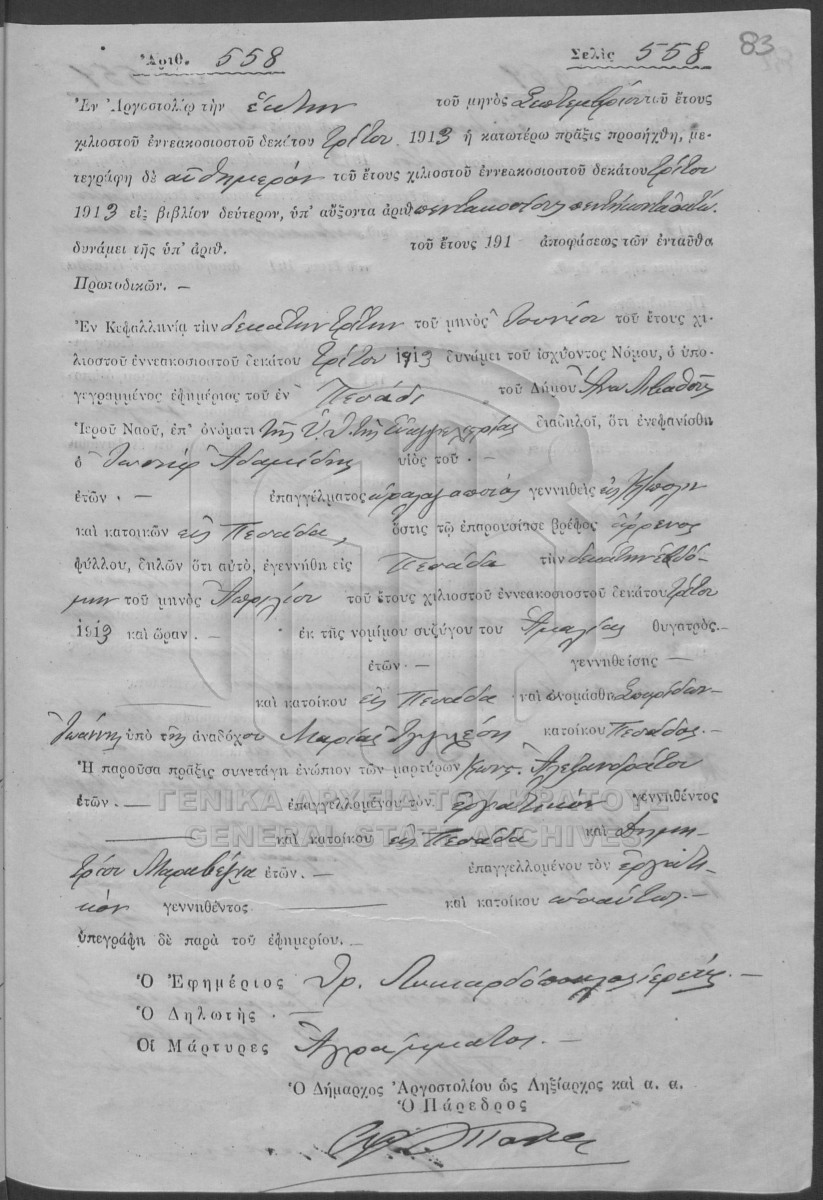 83
Ἀριθ. 558 Σελὶς 558
Ἐν Ἀργοστολίῳ τὴν ἕκτην τοῦ μηνὸς Σεπτεμβρίου τοῦ ἔτους
χιλιοστοῦ ἐννεακοσιοστοῦ δεκάτου τρίτου 1913 ἡ κατωτέρω πρᾶξις προσήχθη, με-
τεγράφη δὲ αὐθημερόν τοῦ ἔτους χιλιοστοῦ ἐννεακοσιοστοῦ δεκάτου τρίτου
1913 εἰς βιβλίον δεύτερον, ὑπ' αὔξοντα ἀριθ.
δυνάμει τῆς ὑπ' ἀριθ. τοῦ ἔτους 191 ἀποφάσεως τῶν ἐνταῦθα
Πρωτοδικῶν. —
Ἐν Κεφαλληνίᾳ τὴν δεκάτην τρίτην τοῦ μηνὸς Ἰουνίου τοῦ ἔτους χι-
λιοστοῦ ἐννεακοσιοστοῦ δεκάτου τρίτου 1913 δυνάμει τοῦ ἰσχύοντος Νόμου, ὁ ὑπο-
γεγραμμένος ἐφημέριος τοῦ ἐν Πεσάδᾳ τοῦ Δήμου
Ἱεροῦ Ναοῦ, ἐπ' ὀνόματι τῆς Ὑ. Θ. τῆς Εὐαγγελιστρίας διαδηλοῖ, ὅτι ἐνεφανίσθη
ὁ Ἰωσήφ Ἀδαμίδης υἱὸς τοῦ -
ἐτῶν - ἐπαγγέλματος γεννηθεὶς εἰς Κ/πολιν
καὶ κατοικῶν εἰς Πεσάδα, ὅστις τῷ ἐπαρουσίασε βρέφος ἄρρενος
φύλλου, δηλῶν ὅτι αὐτὸ, ἐγεννήθη εἰς Πεσάδα τὴν δεκάτην ἑβδό-
μην τοῦ μηνὸς Ἀπριλίου τοῦ ἔτους χιλιοστοῦ ἐννεακοσιοστοῦ δεκάτου τρίτου
1913 καὶ ὥραν. — ἐκ τῆς νομίμου συζύγου του Ἀμαλίας θυγατρὸς —
ἐτῶν - — γεννηθείσης —
καὶ κατοίκου εἰς Πεσάδα καὶ ὠνομάσθη Σπυρίδων-
Ἰωάννης ὑπὸ τῆς ἀναδόχου Μαρίας κατοίκου Πεσάδος. —
Ἡ παροῦσα πρᾶξις συνετάγη ἐνώπιον τῶν μαρτύρων Κωνσ. Ἀλεξανδράτου
ἐτῶν. — ἐπαγγελλομένου τὸν ἐργατικόν γεννηθέντος
— καὶ κατοίκου εἰς Πεσάδα καὶ Δημη-
τρίου Μαραβέγια ἐτῶν. — ἐπαγγελλομένου τὸν ἐργατι-
κόν γεννηθέντος — καὶ κατοίκου ὡσαύτως. —
ὑπεγράφη δὲ παρὰ τοῦ ἐφημερίου. —
Ὁ Ἐφημέριος ἱερεύς. —
Ὁ Δηλωτὴς. —
Οἱ Μάρτυρες Ἀγράμματοι. —
Ὁ Δήμαρχος Ἀργοστολίου ὡς Ληξίαρχος καὶ α. α.
Ὁ Πάρεδρος
ΓΕΝΙΚΑ ΑΡΧΕΙΑ ΤΟΥ ΚΡΑΤΟΥΣ
GENERAL STATE ARCHIVES